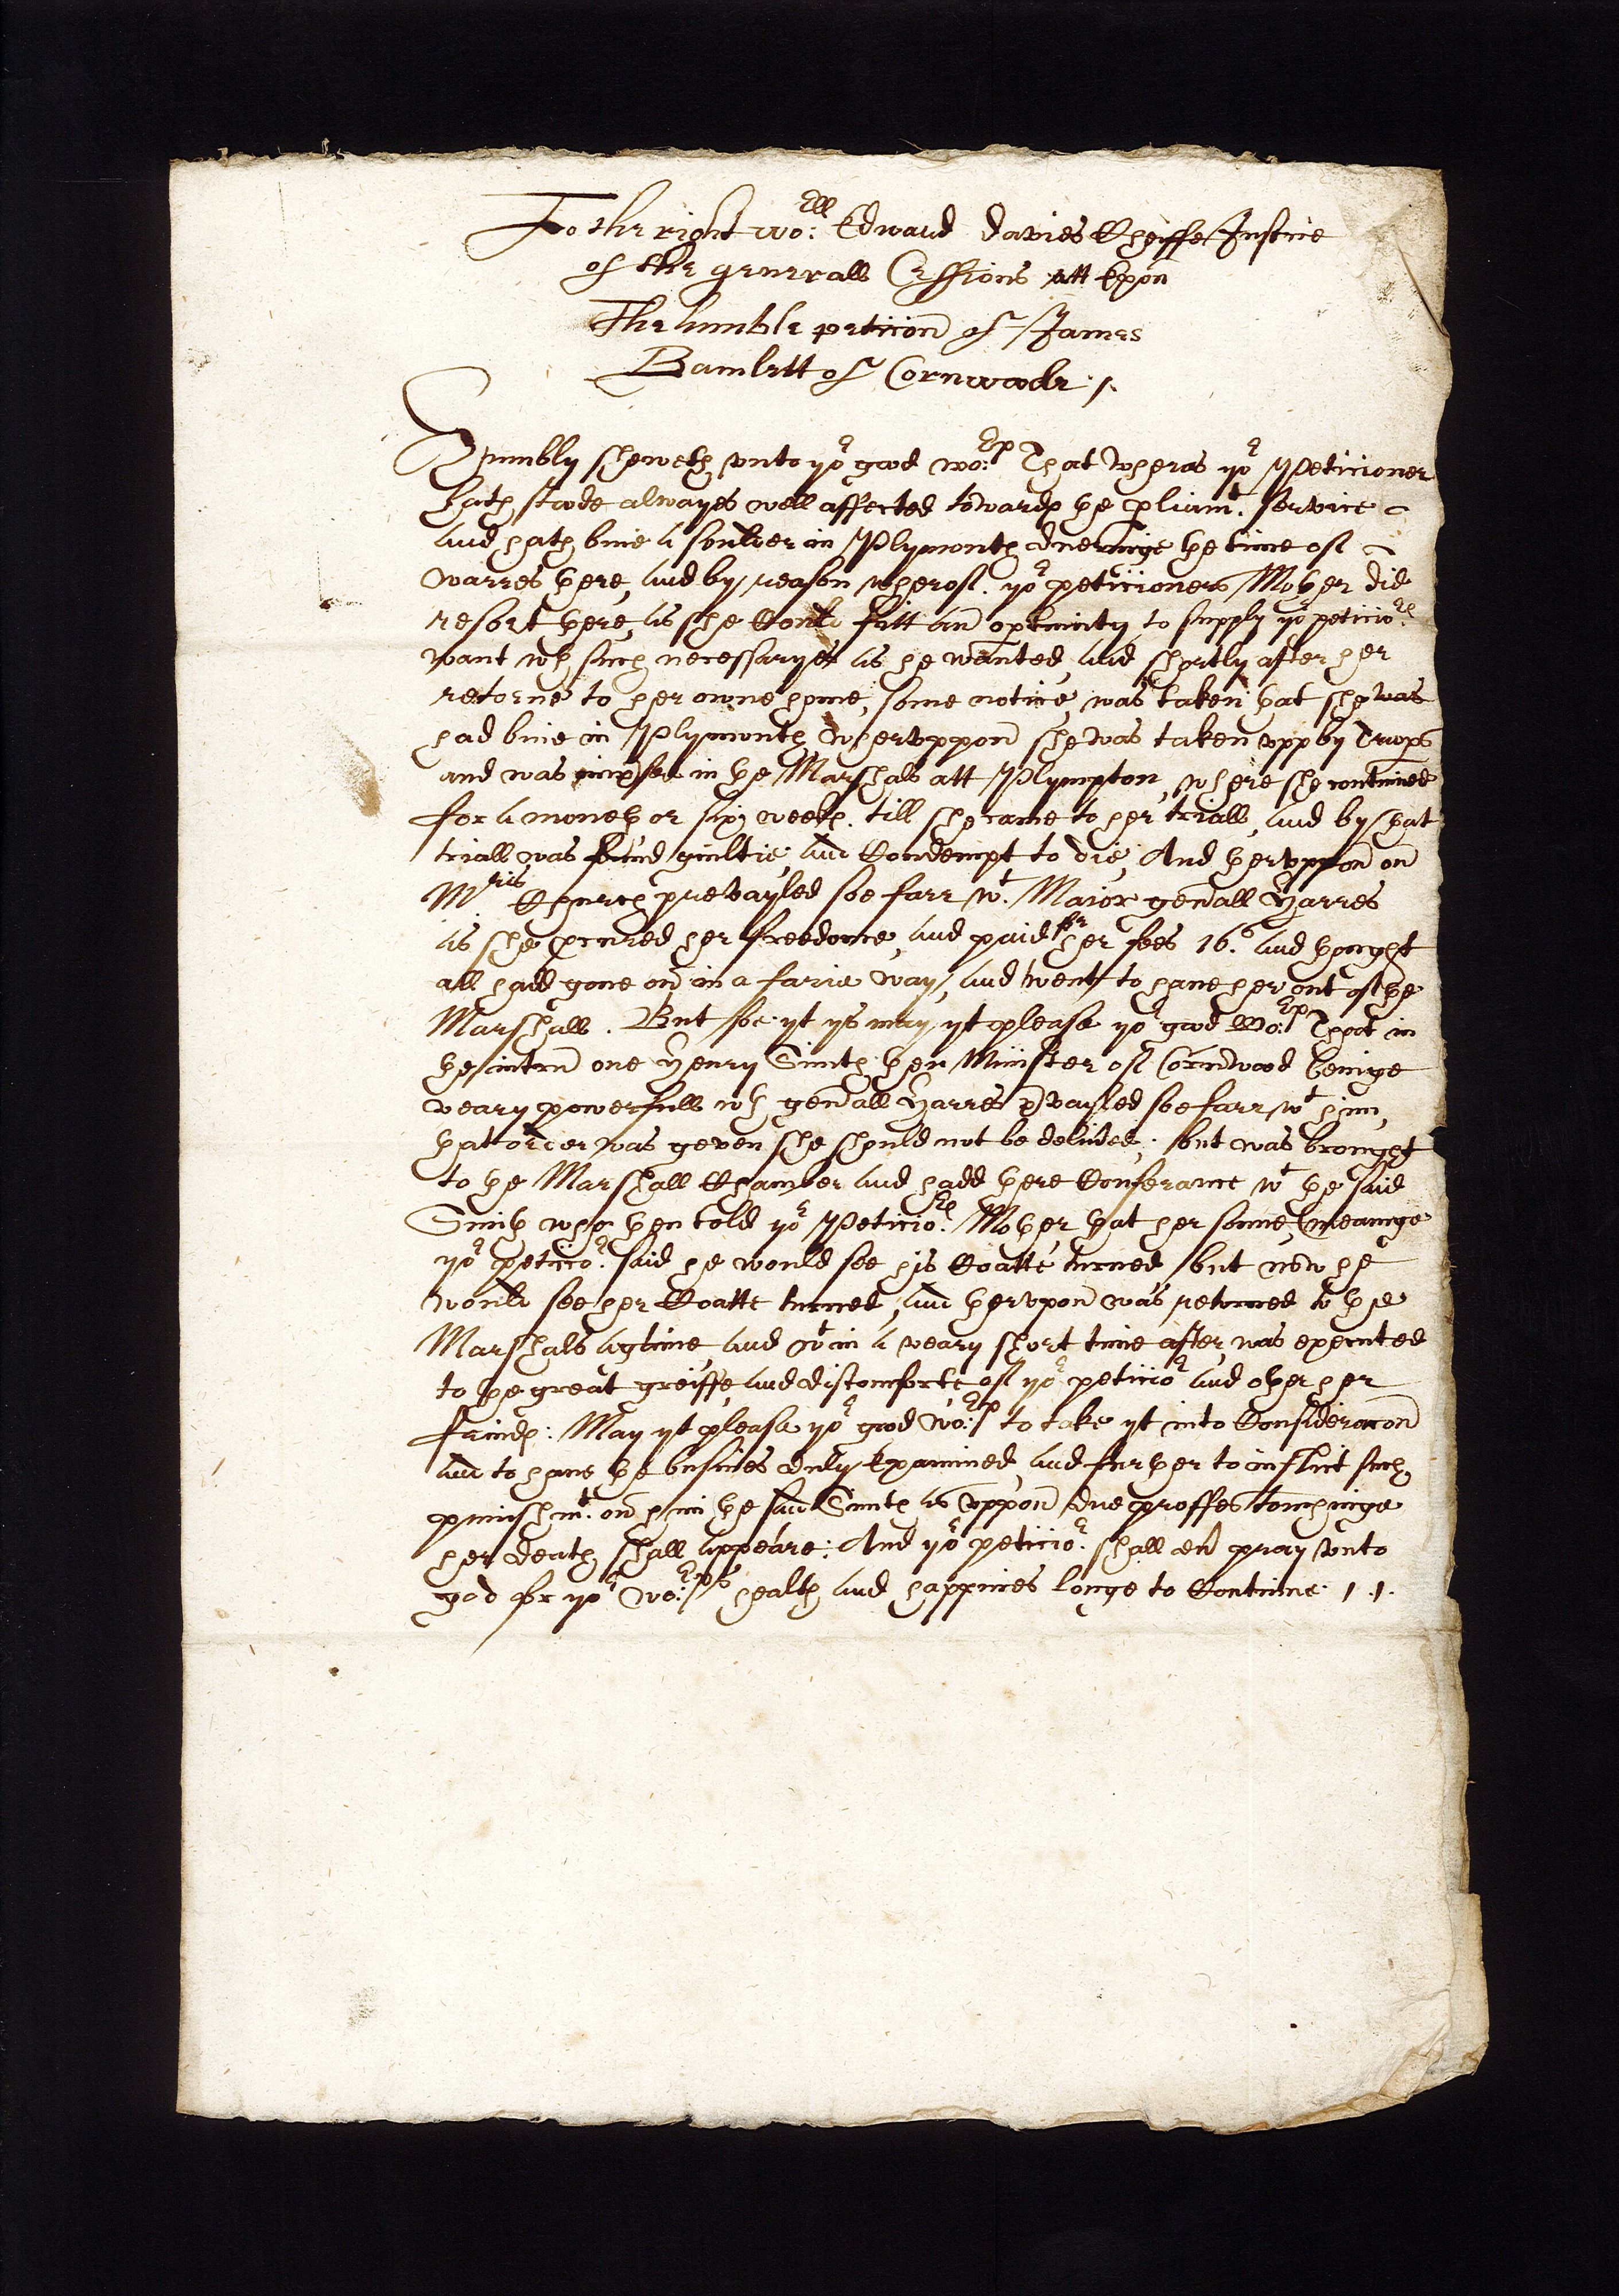 To the right wo:ll Edward Davies Cheiffe Justice
of the generall Cessions att Exon
The humble peticion of James
Bamlett of Cornwoode /.
Humbly sheweth vnto yor good wo:rp That wheras yor Peticioner
hath stoode alwayes well affected towards the pliamt. service
and hath bine a souldier in Plymouth dueringe the time of
warres there, and by reason wherof. yor peticioners Mother did
resort there, as she Could fitt an optunity to supply yor peticiors
want wth such necessaryes as he wanted, and shortly after her
retorne to her owne home, some notice, was taken that she was
had bine in Plymouth Whervppon she was taken vpp by Troops
and was impsed in the Marshals att Plympton, where she continued
for a moneth or six weeks. till she came to her triall, and by that
triall was found guiltie, and Condempt to die, And thervppon on
Mris Church prevayled soe farr wt. Maior genall Harres
as she pcured her freedome, and paid for her fees 16.s and thought
all hadd gone on in a farie way, and went to haue her out of the
Marshalls. But soe yt ys may yt please yor good Wo:rp That in
the intrm one Henry Smith then Minister of Cornwood beinge
veary powerfull wth genall Harres pvayled soe farr wt him,
that order was geven she should not be deliued; but was brought
to the Marshall Chamber and hadd there Conferance wt the said
Smith who then told yor Peticiors Mother, that her sonne, (meaninge
yor peticior. said he would see his Coatte turned but now he
would see her Coatte turned, and thervpon was returned to the
Marshals againe and wtin a veary short time after was executed
to the great greiffe, and discomforte of yor peticior and other her
frinds: May yt please yor good Wo:rp to take yt into Consideracon
and to haue the busines duly Examined, and further to inflict such
punishmt. on him the said Smith as vppon due proffes touchinge
her death shall appeare: And yor peticior. shall eu pray vnto
god for yor wo:rps health and happines longe to Continue //.